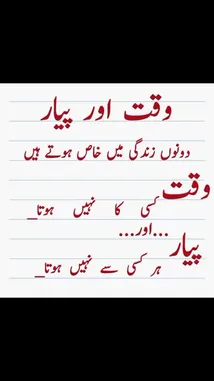 وقت اور پیار
دونوں زندگی میں خاص ہوتے ہیں
وقت کسی کا نہیں ہوتا_
...اور...
پیار ہر کسی سے نہیں ہوتا_